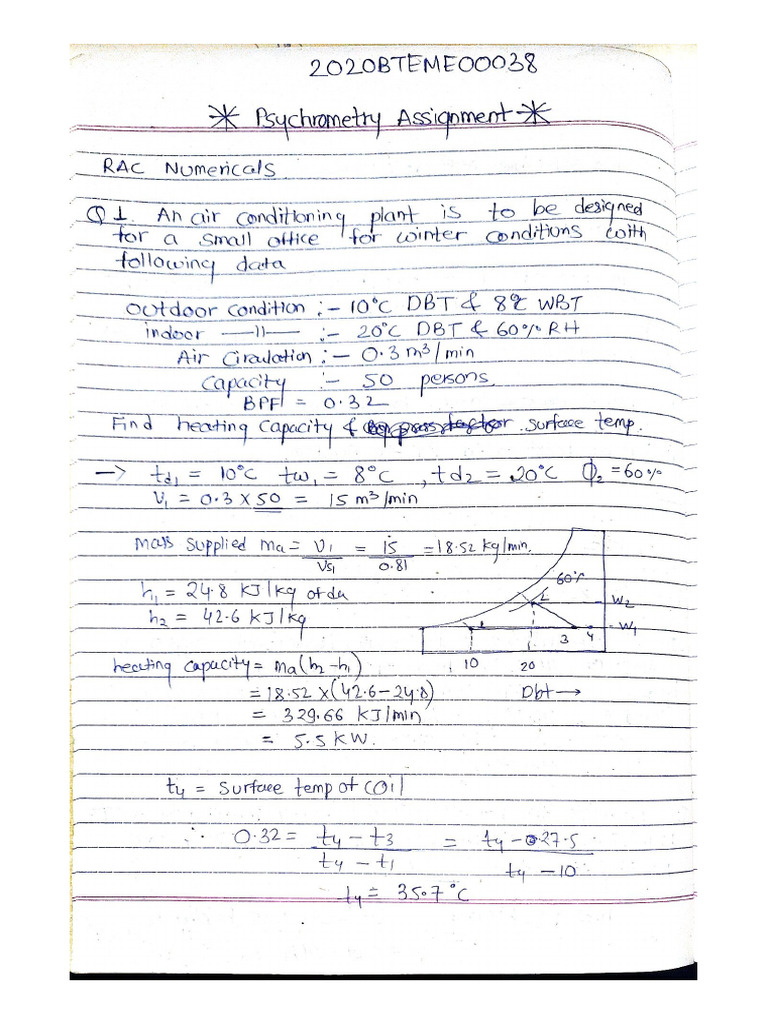 2020BTEME00038
* Psychrometry Assignment *
RAC Numericals
Q1. An air conditioning plant is to be designed
for a small office for winter conditions with
following data
Outdoor condition :- 10°C DBT & 8°C WBT
indoor —11— :- 20°C DBT & 60% RH
Air Circulation :- 0.3 m³/min
Capacity :- 50 persons
BPF = 0.32
Find heating capacity & surface temp.
→ td₁ = 10°C tw₁ = 8°C , td₂ = 20°C Φ₂ = 60%
V₁ = 0.3 × 50 = 15 m³/min
Mass supplied ma = V₁/Vs₁ = 15/0.81 = 18.52 kg/min.
h₁ = 24.8 KJ/kg of da
h₂ = 42.6 KJ/kg
60%
2
W₂
1
3 4
W₁
10 20
Dbt →
heating capacity = ma(h₂-h₁)
= 18.52 × (42.6-24.8)
= 329.66 KJ/min
= 5.5 KW.
t₄ = Surface temp of coil
∴ 0.32 = t₄ - t₃ / t₄ - t₁ = t₄ - 27.5 / t₄ - 10
t₄ = 35.7°C